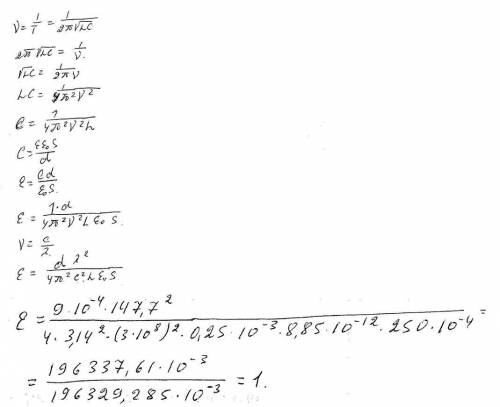 ν = 1/T = 1/2π√LC
2π√LC = 1/ν.
√LC = 1/2πν
LC = 1/4π²ν²
C = 1/4π²ν²L
C = εε₀S/d
ε = Cd/ε₀S.
ε = 1·d/4π²ν²Lε₀S.
ν = c/λ.
ε = dλ²/4π²c²Lε₀S
ε = 9·10⁻⁴·147,7²/4·3,14²·(3·10⁸)²·0,25·10⁻³·8,85·10⁻¹²·250·10⁻⁴ =
= 196337,61·10⁻³/196329,285·10⁻³ = 1.